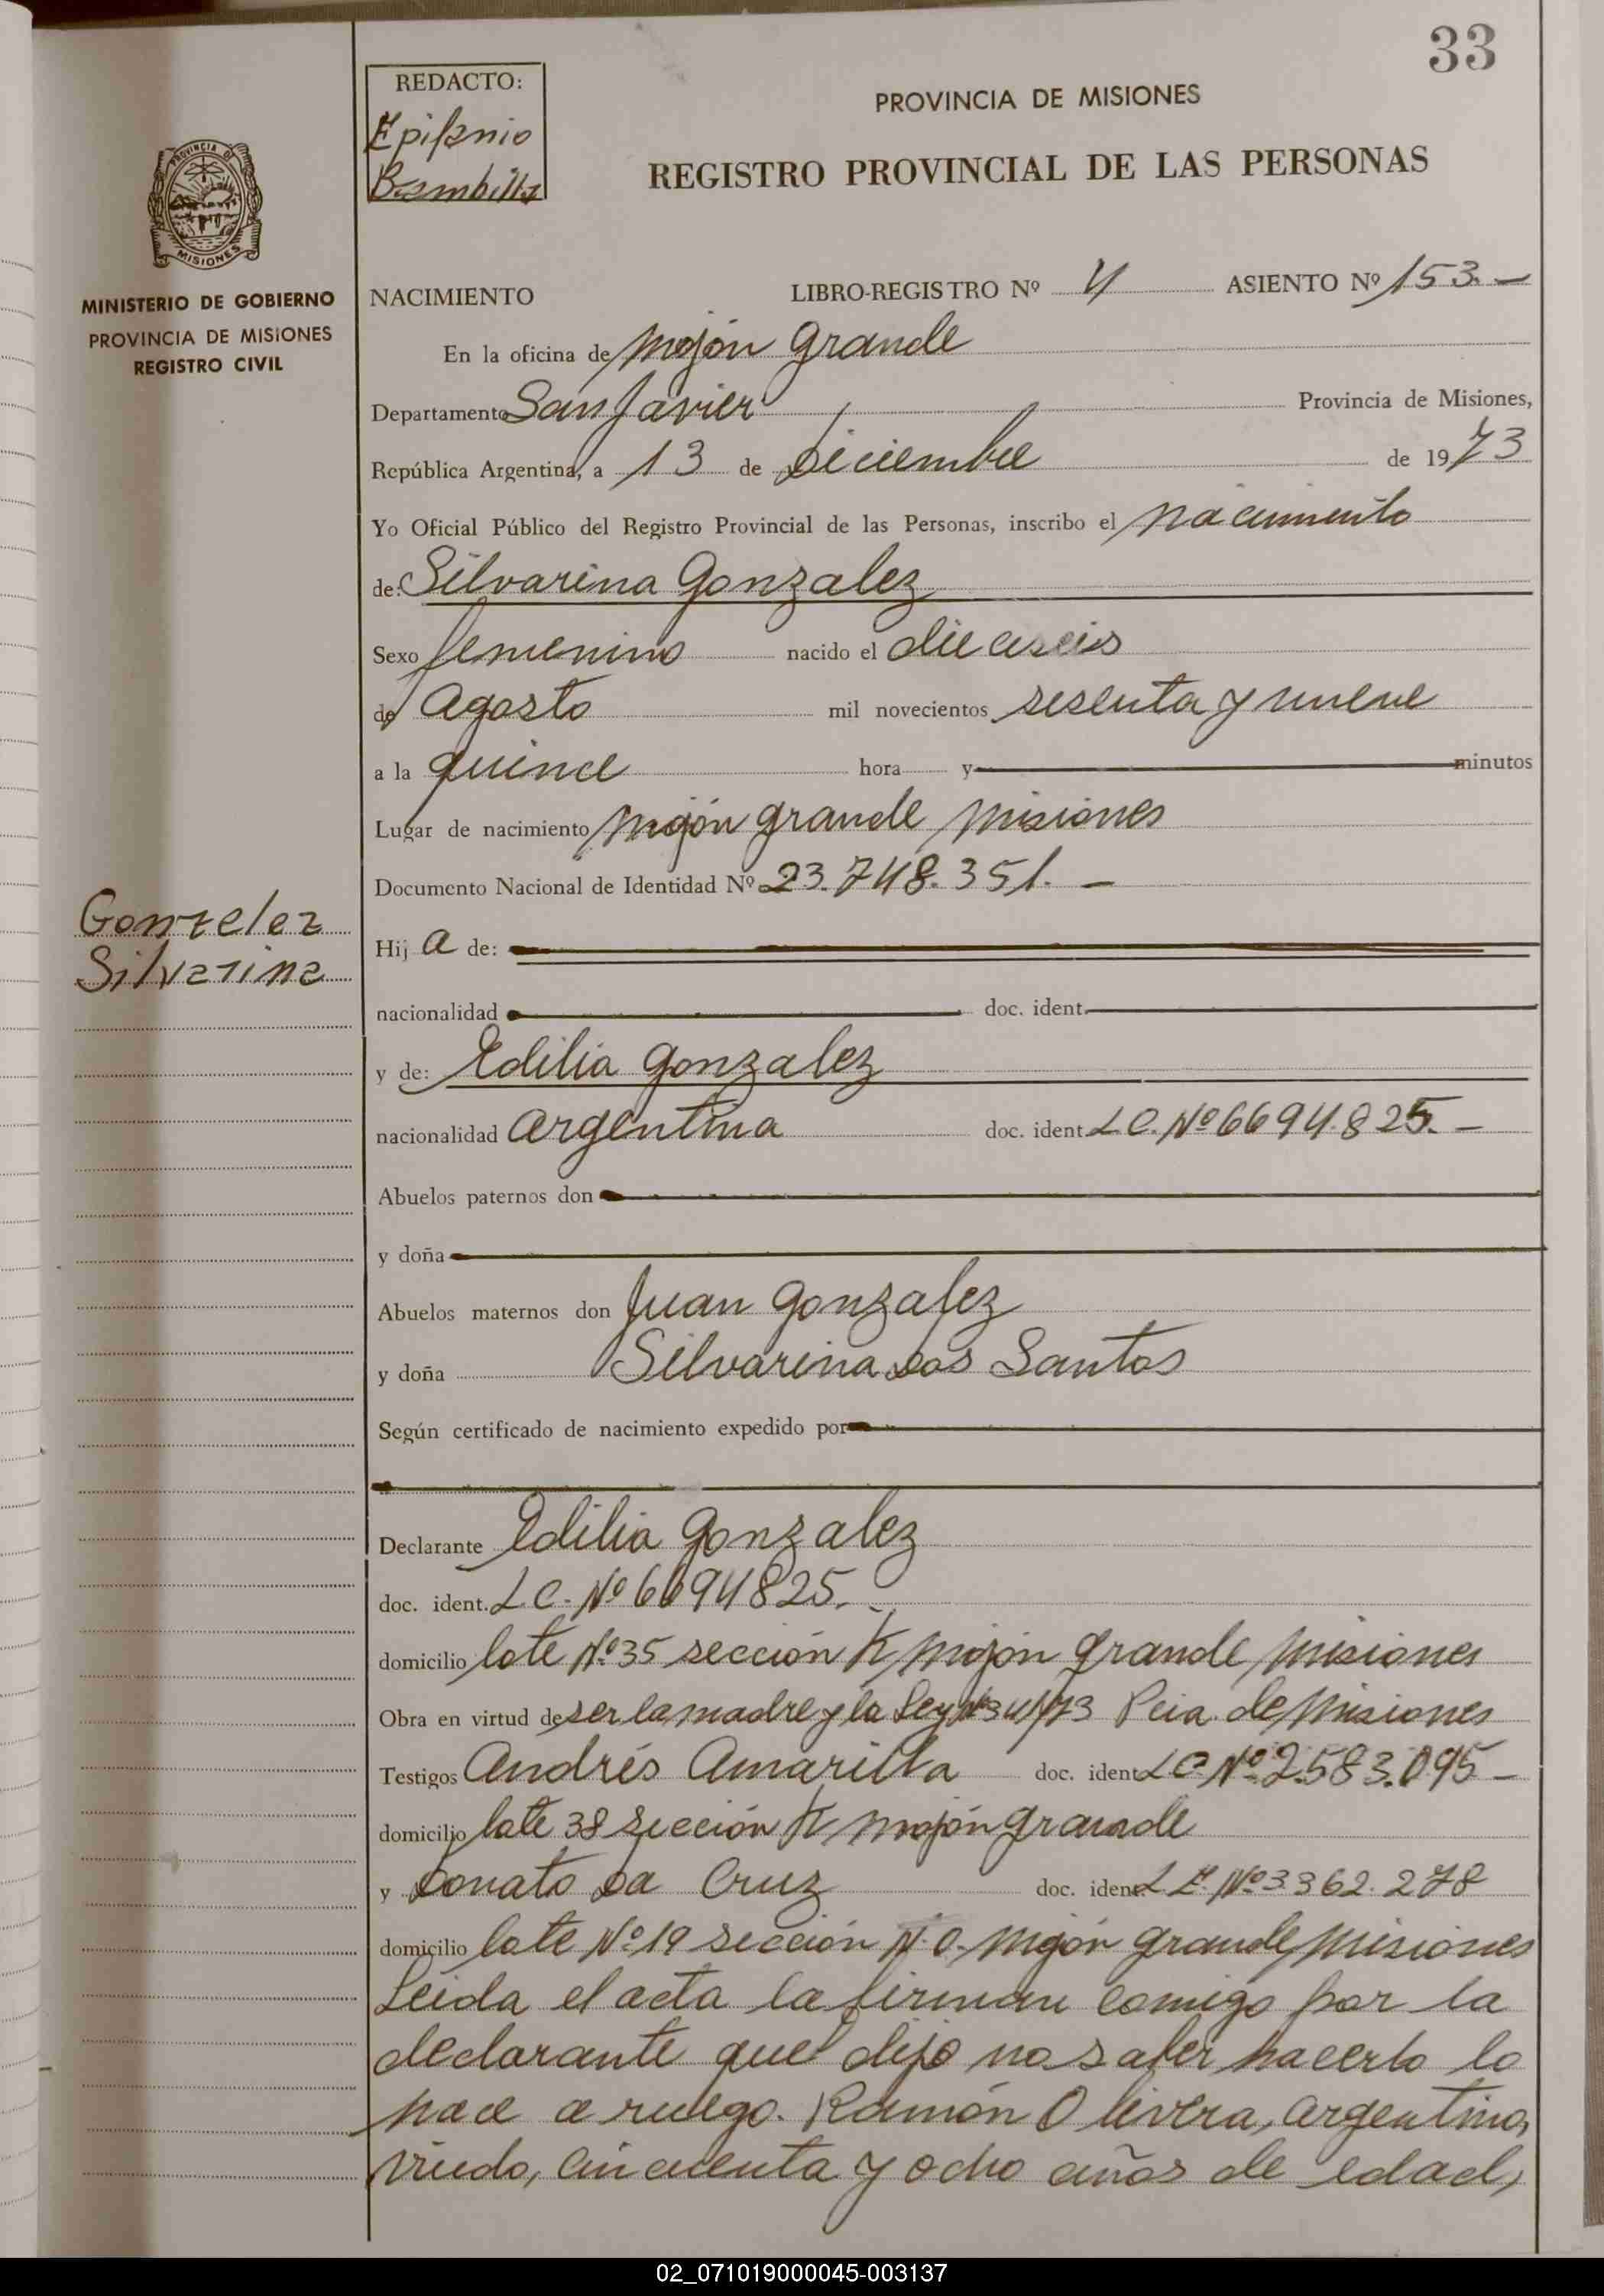 33
REDACTO:
Epifanio
Bambilla
PROVINCIA DE MISIONES
REGISTRO PROVINCIAL DE LAS PERSONAS
PROVINCIA DE
MISIONES
MINISTERIO DE GOBIERNO
PROVINCIA DE MISIONES
REGISTRO CIVIL
NACIMIENTO LIBRO-REGISTRO Nº 4 ASIENTO Nº 153.—
En la oficina de Mojón Grande
Departamento San Javier Provincia de Misiones,
República Argentina, a 13 de Diciembre de 1973
Yo Oficial Público del Registro Provincial de las Personas, inscribo el nacimiento
de: Silvarina Gonzalez
Sexo femenino nacido el dieciseis
de Agosto mil novecientos sesenta y nueve
a la quince hora y minutos
Lugar de nacimiento Mojón Grande Misiones
Documento Nacional de Identidad Nº 23.748.351.—
Gonzalez
Silvarina
Hij a de:
nacionalidad doc. ident.
y de: Edilia Gonzalez
nacionalidad Argentina doc. ident. L C. Nº 6694.825.—
Abuelos paternos don
y doña
Abuelos maternos don Juan Gonzalez
y doña Silvarina Dos Santos
Según certificado de nacimiento expedido por
Declarante Edilia Gonzalez
doc. ident. L. C. Nº 6694825.
domicilio lote Nº 35 sección K Mojón Grande Misiones
Obra en virtud de ser la madre y la Ley Pcia. de Misiones
Testigos Andrés Amarilla doc. ident. Nº 2.583.095—
domicilio lote 38 sección K Mojón Grande
y Donato Da Cruz doc. ident. L E. Nº 3.362.278
domicilio lote Nº 19 sección Mojón Grande Misiones
Leida el acta la firman comigo por la
declarante que dijo no saber hacerlo lo
hace a ruego. Ramón Olivera, argentino,
viudo, cincuenta y ocho años de edad,
02_071019000045-003137